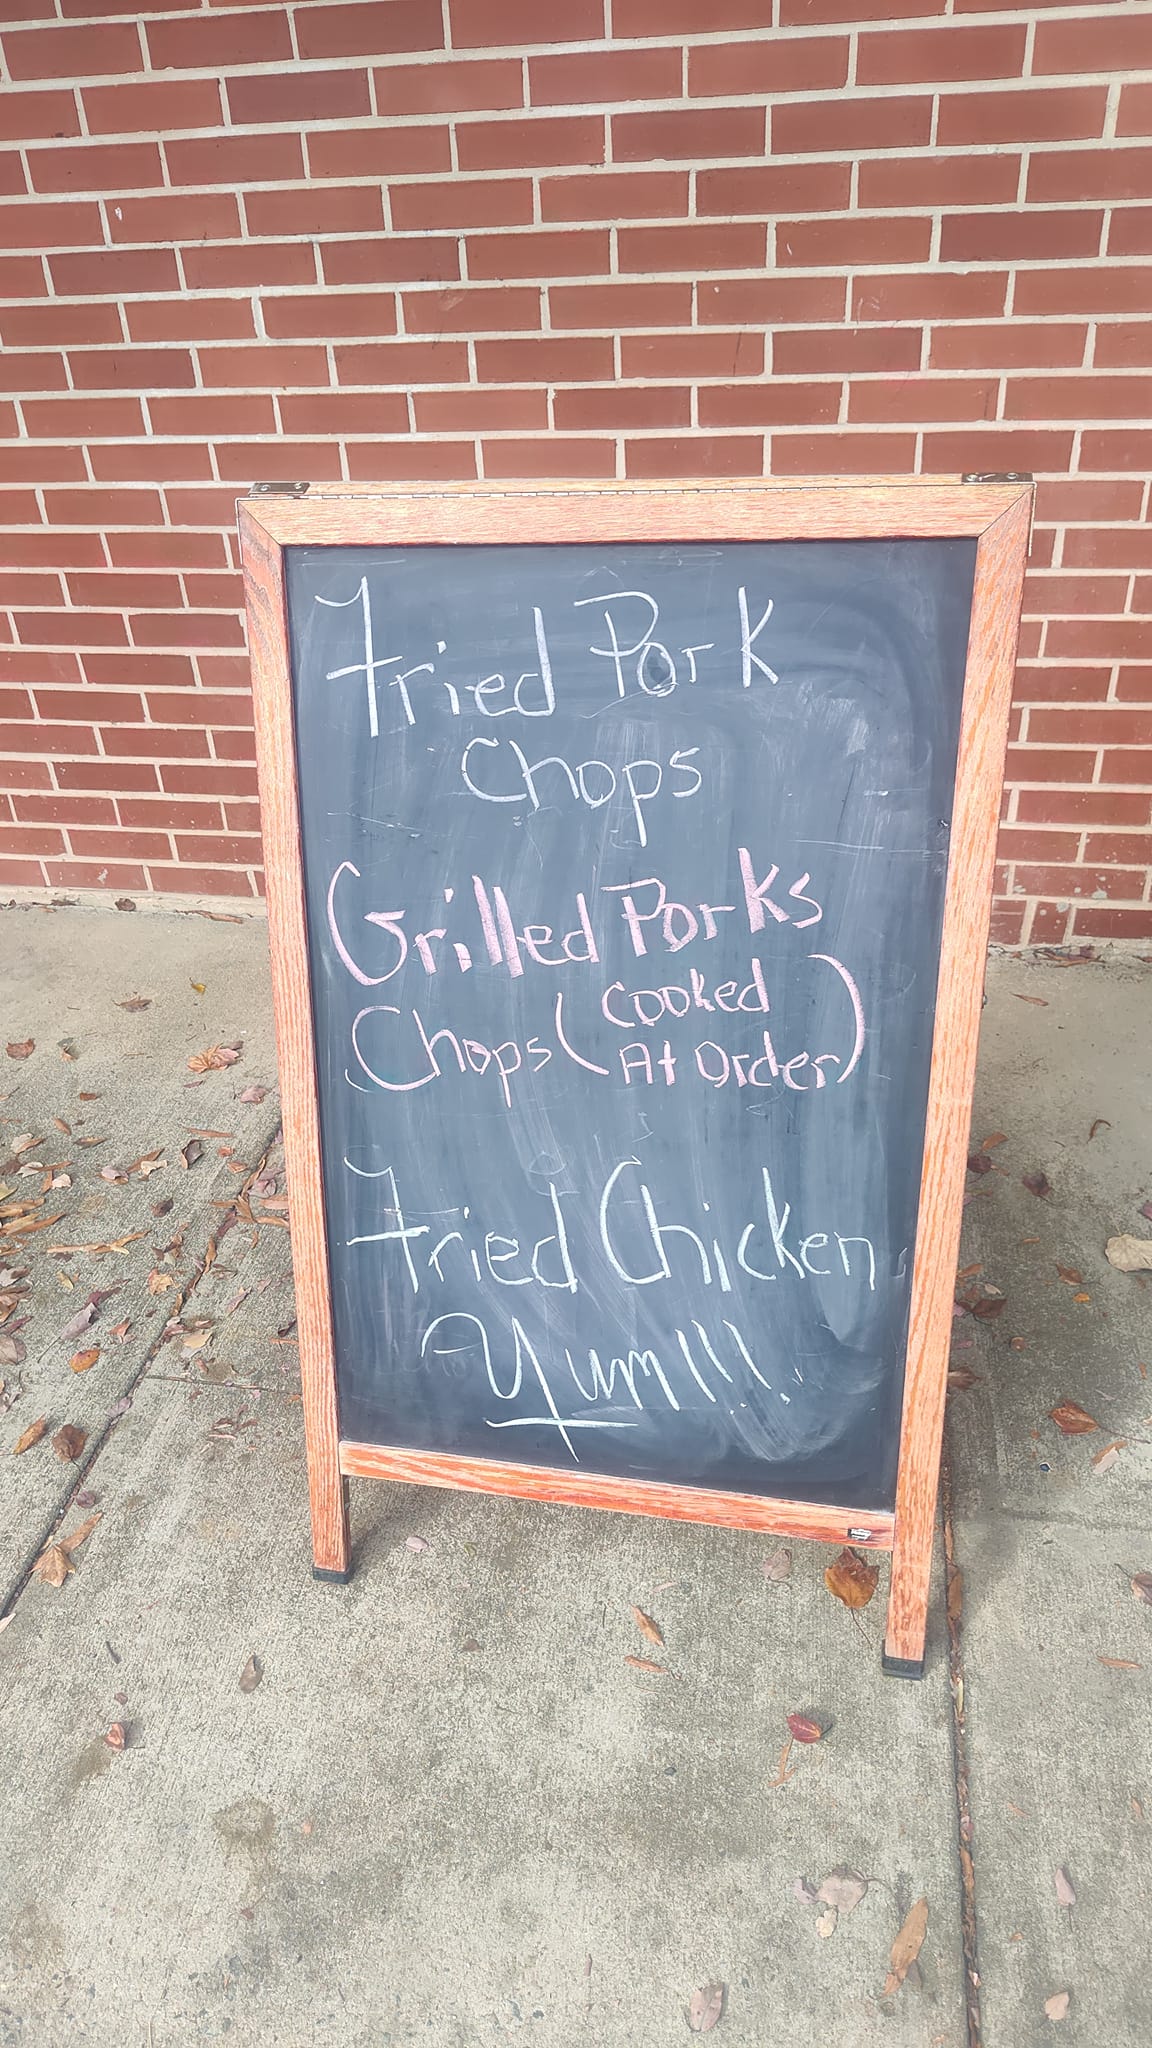 Fried Pork
Chops
Grilled Porks
Chops (Cooked
At Order)
Fried Chicken
Yum!!!